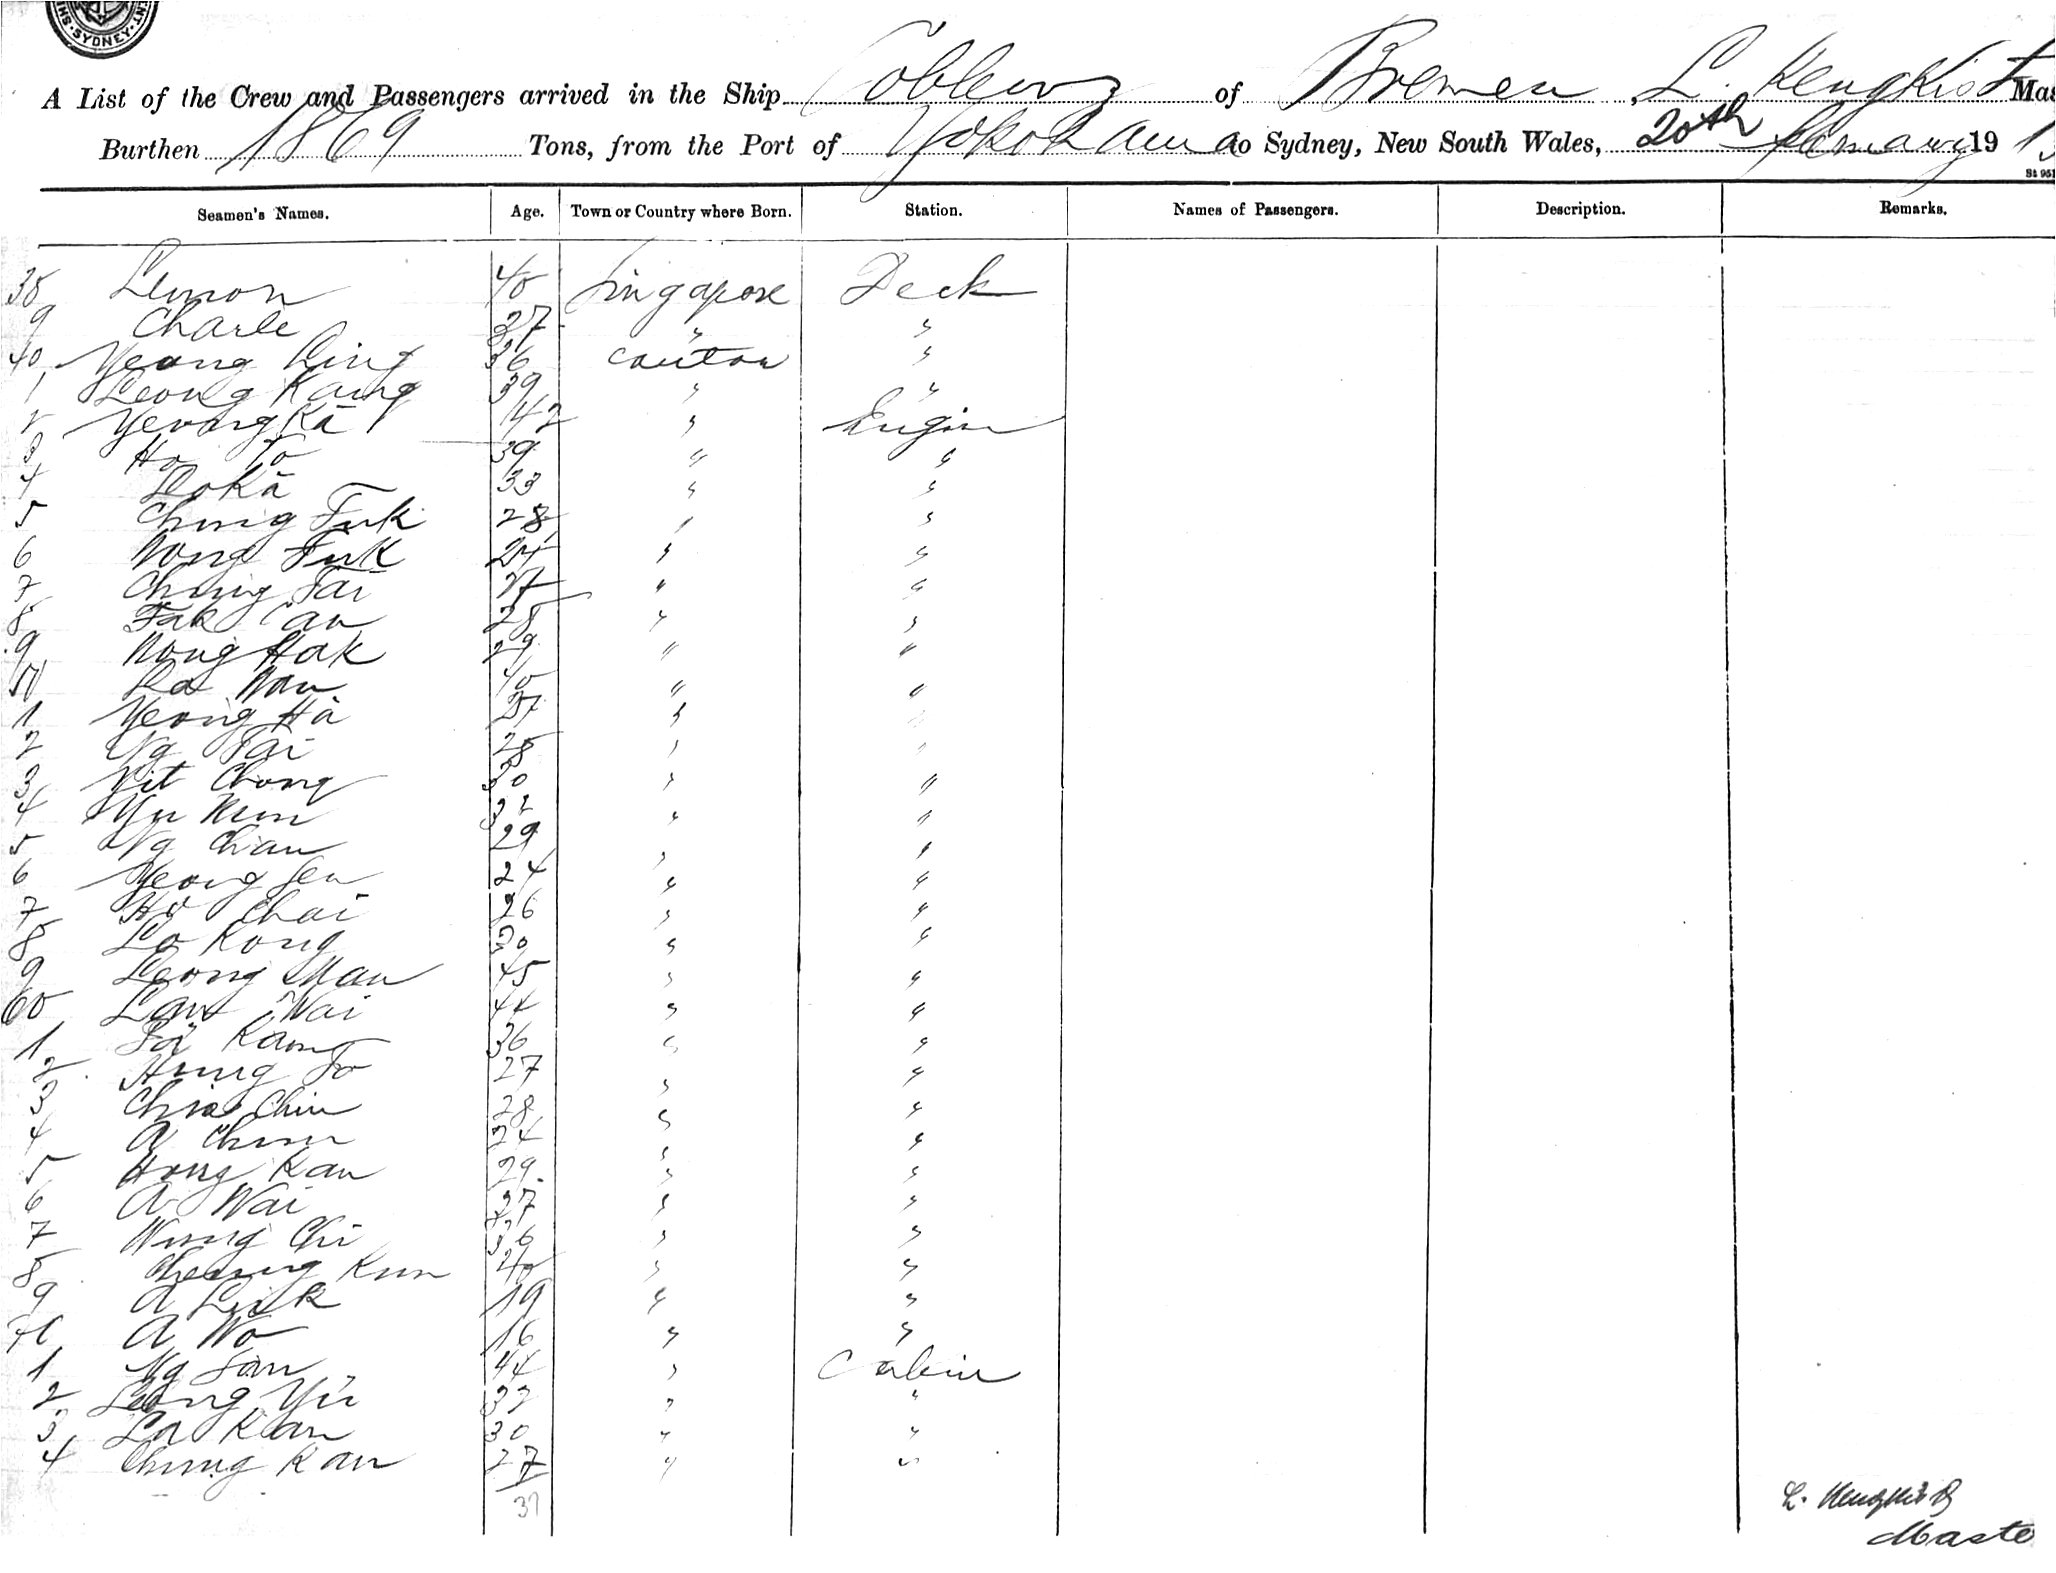 SYDNEY
A List of the Crew and Passengers arrived in the Ship Coblenz of Bremen, L. Mas
Burthen 1869 Tons, from the Port of Yokohama to Sydney, New South Wales, 20th 19 13
Seamen's Names. Age. Town or Country where Born. Station. Names of Passengers. Description. Remarks.
38 Lemon 40 Singapore Deck
9 Charle 27 " "
40 Yeong Ling 36 Canton "
1 Leong Kaung 39 " "
2 Yeong Kā 42 " Engin
3 Ho To 39 " "
4 Lo Kā 33 " "
5 Chung Fuk 28 " "
6 Wong Fuk 24 " "
7 Chung Tai 27 " "
8 Fak Can 28 " "
9 Wong Hak 29 " "
50 La Wan 40 " "
1 Yeong Hā 27 " "
2 Ng Tai 28 " "
3 Yit Chong 30 " "
4 Yu Kum 32 " "
5 Ng Chau 29 " "
6 Yeong Sen 24 " "
7 Ho Chai 26 " "
8 Lo Kong 30 " "
9 Leong Mau 45 " "
60 Lau Wai 44 " "
1 Kam 36 " "
2 Hung To 27 " "
3 Chin 28 " "
4 A Chun 24 " "
5 Hong Kau 29 " "
6 A Wai 27 " "
7 Wung Chi 36 " "
8 Cheung Kun 40 " "
9 A Luk 19 " "
70 A Wo 16 " "
1 Ng San 44 " Cabin
2 Leong Yü 33 " "
3 La Kan 30 " "
4 Chung Kau 27 " "
37
L.
Maste